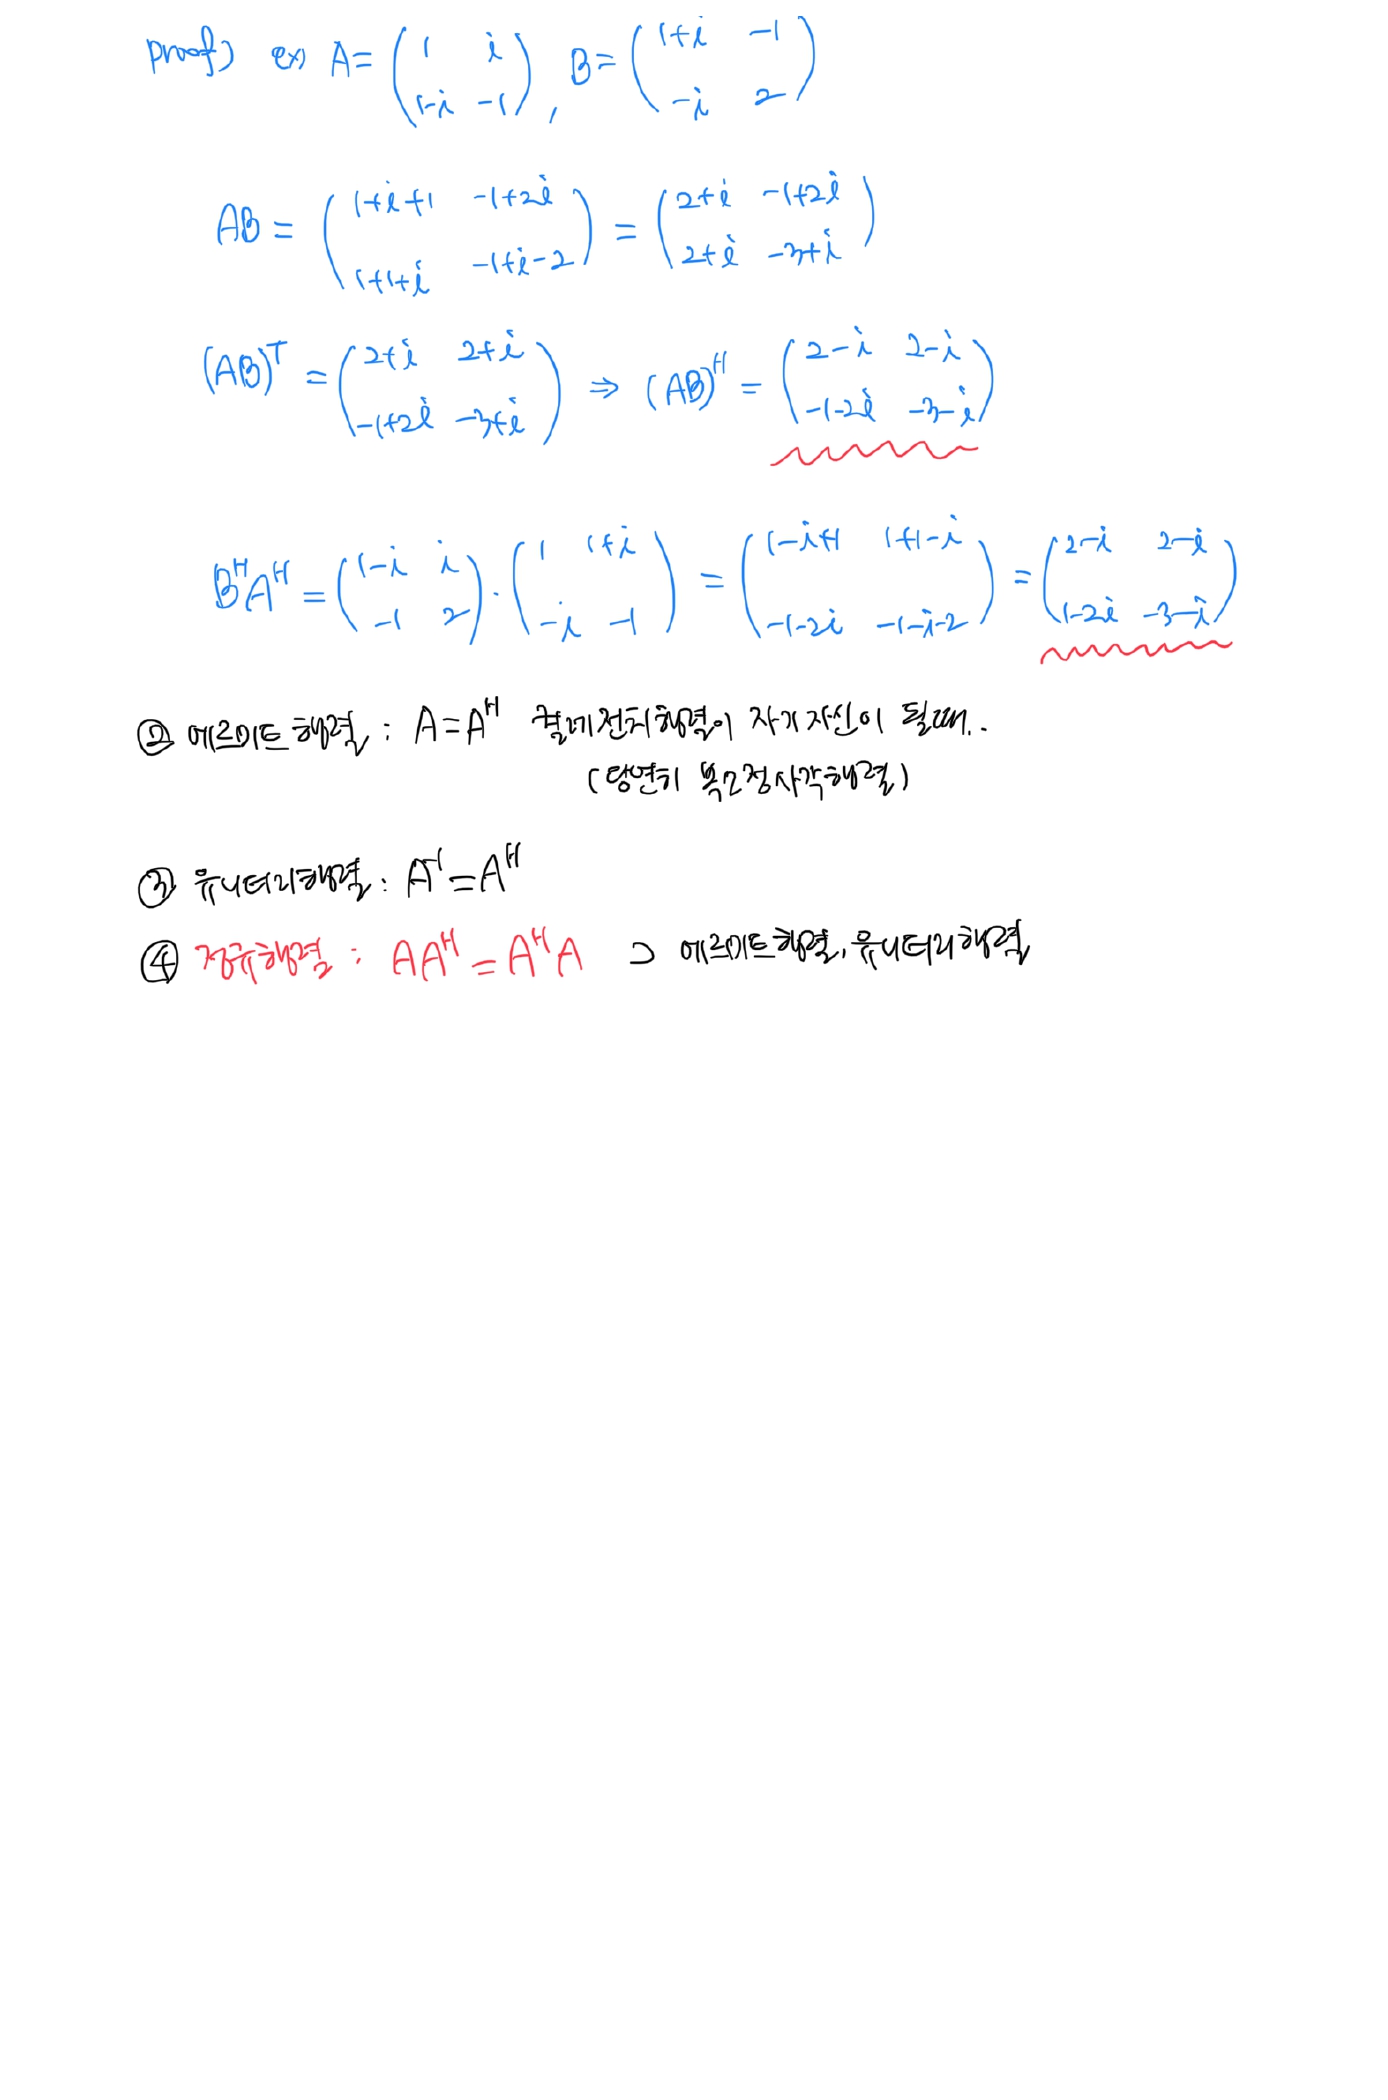 proof) ex) A = ( 1 i ; 1-i -1 ) , B = ( 1+i -1 ; -i 2 )
AB = ( 1+i+1 -1+2i ; 1+1+i -1+i-2 ) = ( 2+i -1+2i ; 2+i -3+i )
(AB)^T = ( 2+i 2+i ; -1+2i -3+i ) ⇒ (AB)^H = ( 2-i 2-i ; -1-2i -3-i )
B^H A^H = ( 1-i i ; -1 2 ) · ( 1 1+i ; -i -1 ) = ( 1-i+1 1+1-i ; -1-2i -1-i-2 ) = ( 2-i 2-i ; 1-2i -3-i )
② 에르미트 행렬 : A = A^H 켤레전치행렬이 자기 자신이 될때..
(당연히 복소정사각행렬)
③ 유니터리행렬 : A^-1 = A^H
④ 정규행렬 : AA^H = A^H A ⊃ 에르미트 행렬, 유니터리 행렬